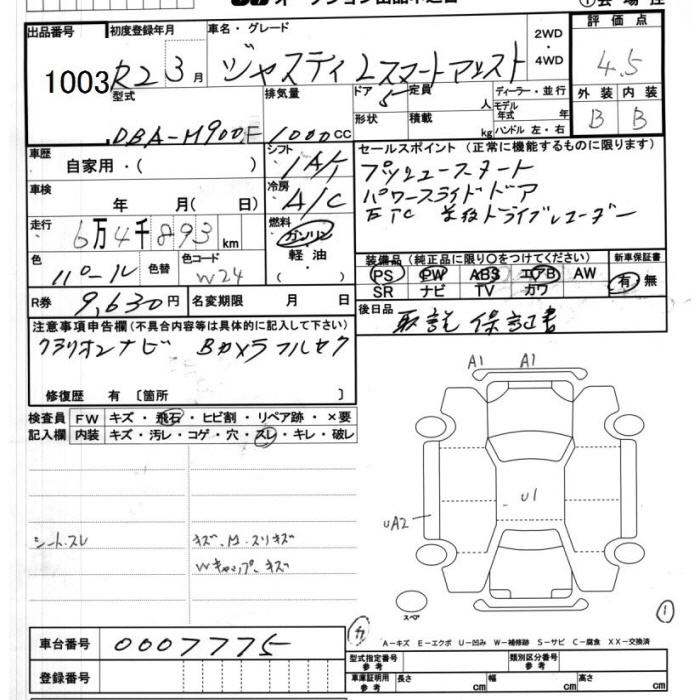 出品番号 初度登録年月 車名・グレード 2WD・4WD 評価点
1003 R2 3月 ジャスティ Lスマートアシスト 4.5
型式 排気量 ドア 5 定員 人 ディーラー・並行 外装 内装
DBA-M900F 1000cc 形状 積載 kg モデル年式 年 ハンドル 左・右 B B
車歴 自家用・( ) シフト ・ IA/T セールスポイント(正常に機能するものに限ります)
プッシュースタート
車検 年 月( 日) 冷房 A/C パワースライドドア
ETC 前後ドライブレコーダー
走行 6万4千893km 燃料 ガソリン・軽油・( )
装備品(純正品に限り○をつけてください) 新車保証書
色 パール 色替 色コード W24 PS PW ABS エアB AW 有・無
SR ナビ TV カワ
R券 9,630円 名変期限 月 日 後日品 取説 保証書
注意事項申告欄(不具合内容等は具体的に記入して下さい)
クラリオンナビ Bカメラ フルセグ
修復歴 有 〔箇所 〕
検査員記入欄 FW キズ・飛石・ヒビ割・リペア跡・×要
内装 キズ・汚レ・コゲ・穴・スレ・キレ・破レ
A1 A1
U1
UA2
シートスレ
Wキャップ、キズ
スペア
①
A-キズ E-エクボ U-凹み W-補修跡 S-サビ C-腐食 XX-交換済
車台番号 0007775
型式指定番号 参考 類別区分番号 参考
登録番号 車庫証明用 参考 長さ cm 幅 cm 高さ cm